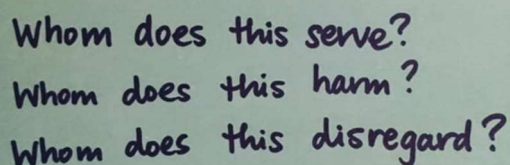 Whom does this serve?
Whom does this harm?
Whom does this disregard?